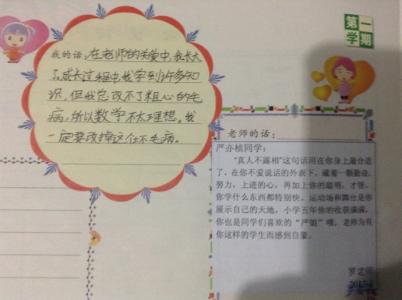 我的话：在老师的关爱中，我长大
了，成长过程中我学到许多知
识，但我总改不了粗心的毛
病，所以数学不太理想。我
一定要改掉这个坏毛病。
第一
学期
老师的话：
严亦核同学：
“真人不露相”这句话用在你身上最合适
了，在你不爱说话的外表下，藏着一颗勤奋、
努力、上进的心，再加上你的聪明、才智，
你学什么东西都特别快。运动场和舞台是你
展示自己的天地，小学五年你的收获满满，
你也是同学们喜欢的“严姐”哦。老师为有
你这样的学生而感到自豪。